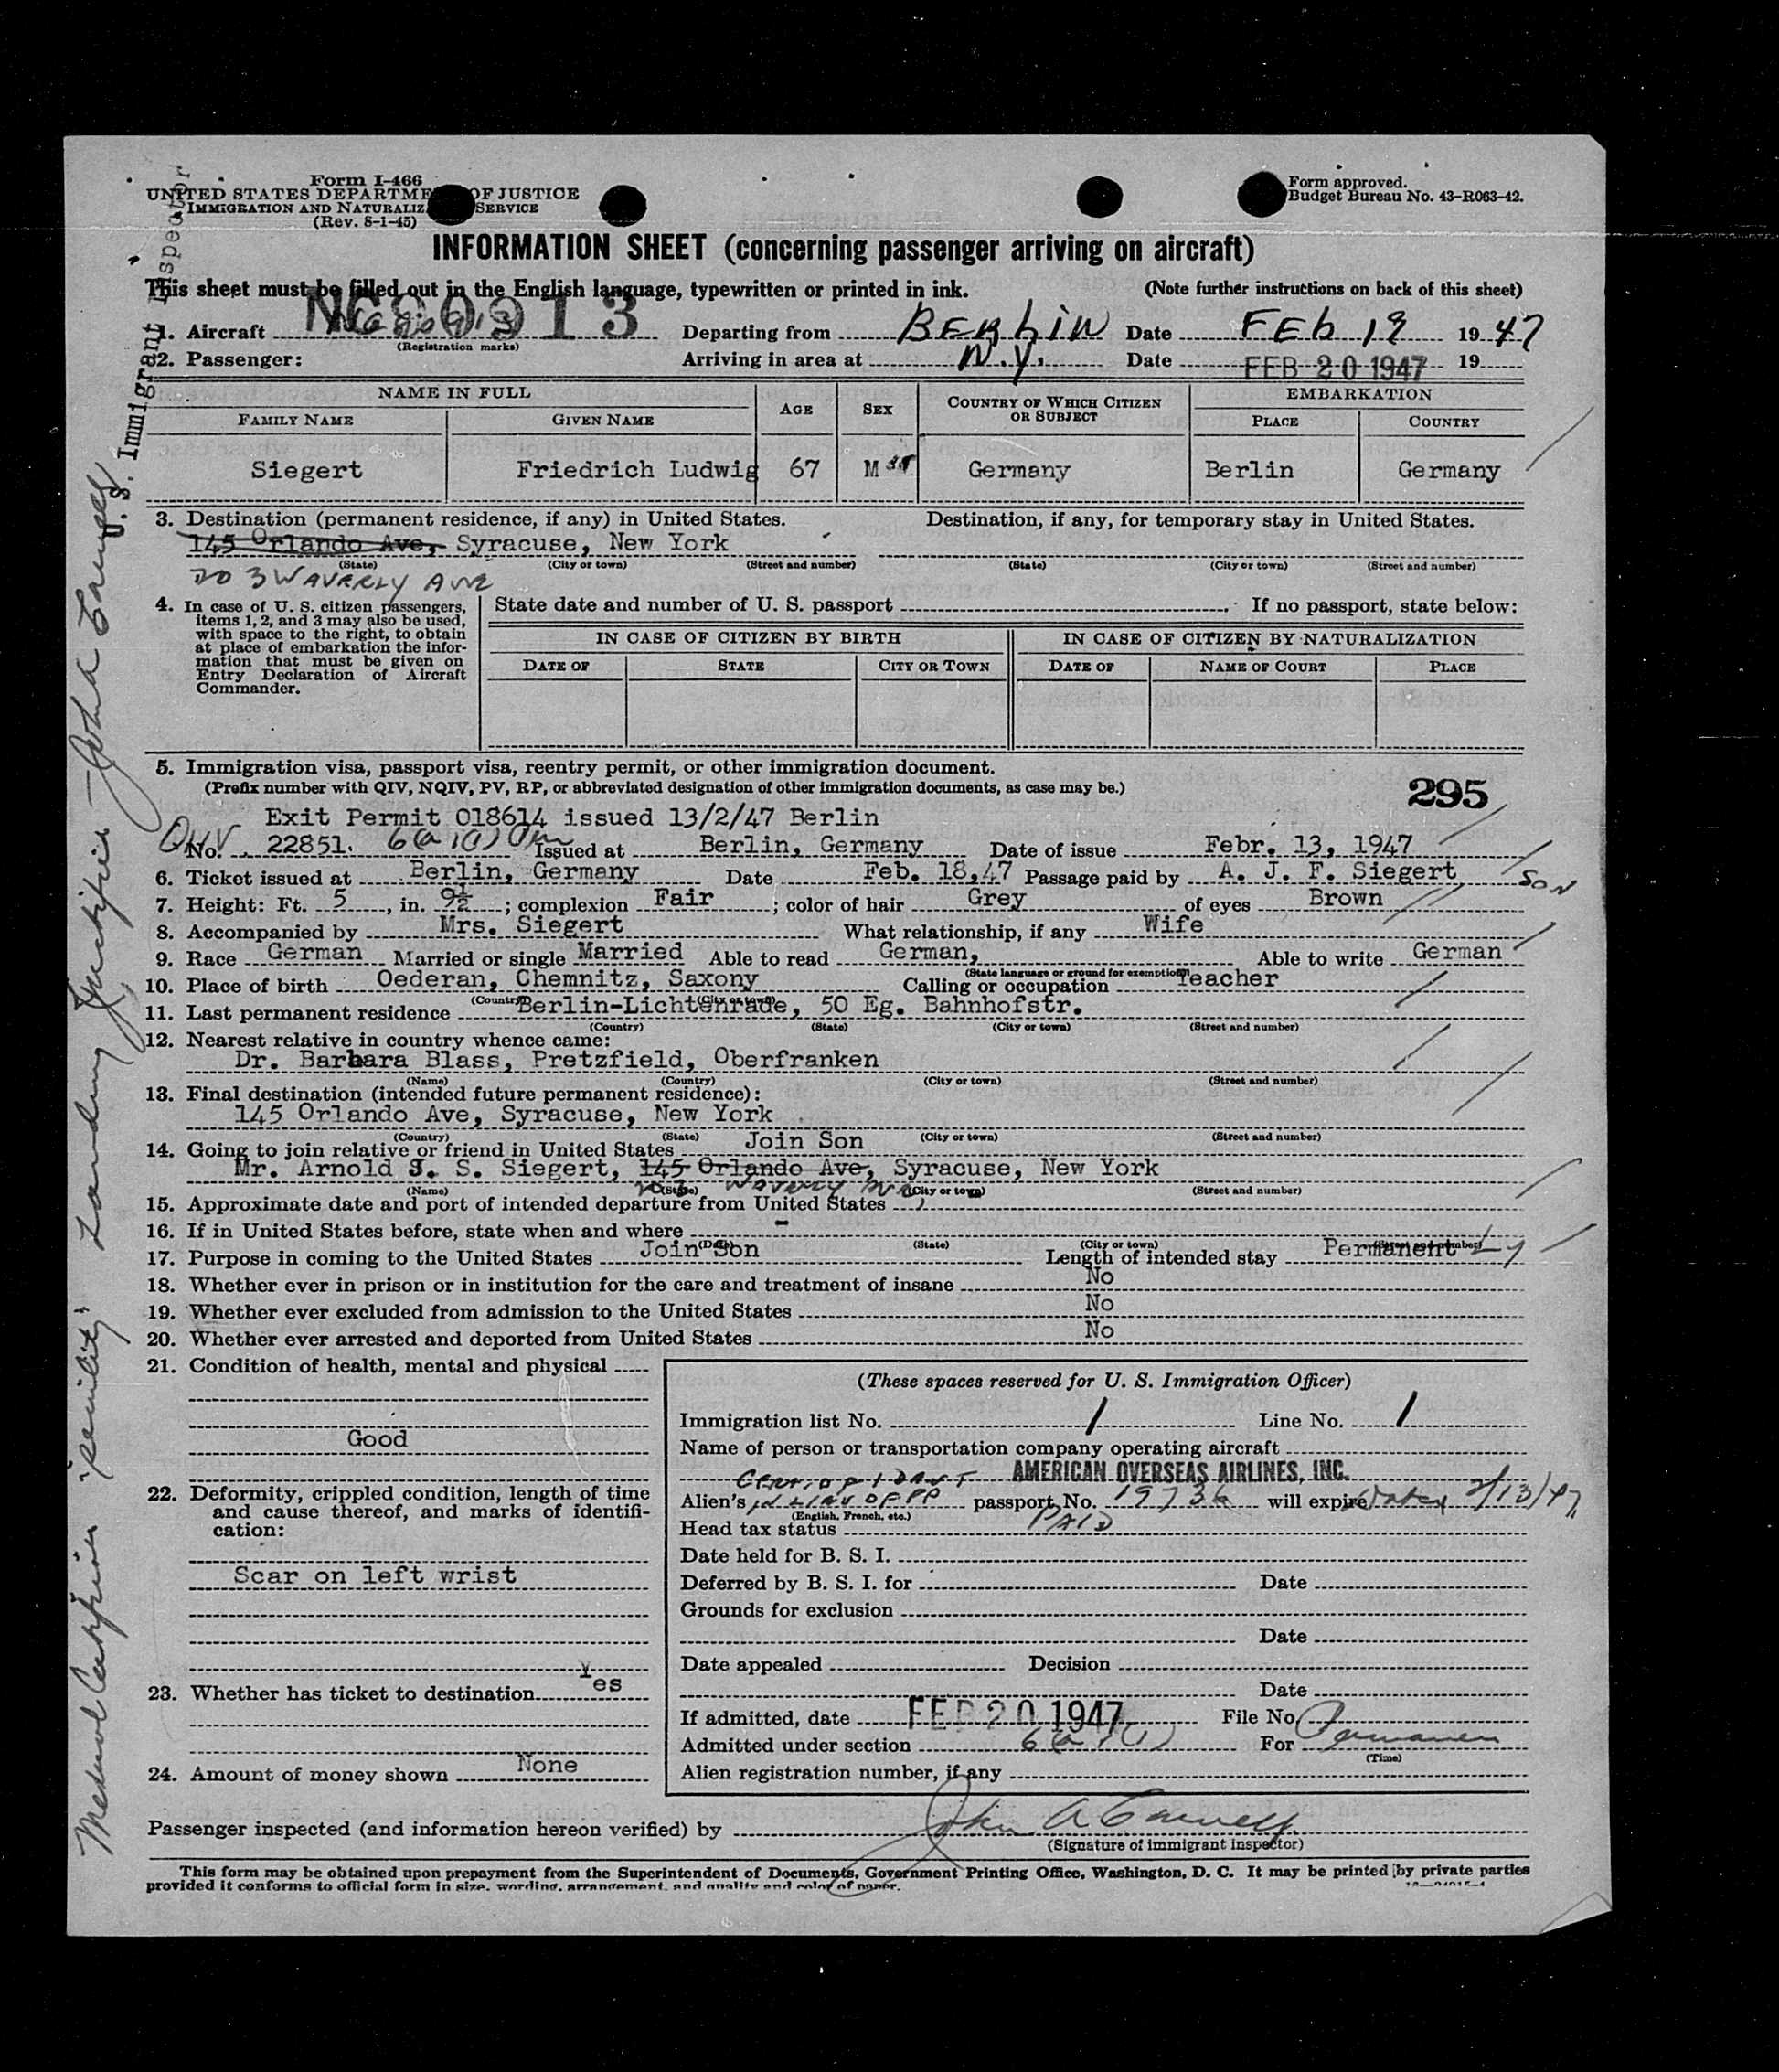 Form I-466
UNITED STATES DEPARTME OF JUSTICE
IMMIGRATION AND NATURALIZ SERVICE
(Rev. 8-1-45)
Form approved.
Budget Bureau No. 43-R063-42.
INFORMATION SHEET (concerning passenger arriving on aircraft)
This sheet must be filled out in the English language, typewritten or printed in ink. (Note further instructions on back of this sheet)
1. Aircraft NC90913 Departing from BERLIN Date FEB 19 1947
(Registration marks)
2. Passenger: Arriving in area at N.Y. Date FEB 20 1947 19
NAME IN FULL AGE SEX COUNTRY OF WHICH CITIZEN OR SUBJECT EMBARKATION
FAMILY NAME GIVEN NAME PLACE COUNTRY
Siegert Friedrich Ludwig 67 M Germany Berlin Germany
3. Destination (permanent residence, if any) in United States. Destination, if any, for temporary stay in United States.
145 Orlando Ave, Syracuse, New York
(State) (City or town) (Street and number) (State) (City or town) (Street and number)
203 WAVERLY AVE
4. In case of U. S. citizen passengers, items 1, 2, and 3 may also be used, with space to the right, to obtain at place of embarkation the information that must be given on Entry Declaration of Aircraft Commander.
State date and number of U. S. passport If no passport, state below:
IN CASE OF CITIZEN BY BIRTH IN CASE OF CITIZEN BY NATURALIZATION
DATE OF STATE CITY OR TOWN DATE OF NAME OF COURT PLACE
5. Immigration visa, passport visa, reentry permit, or other immigration document.
(Prefix number with QIV, NQIV, PV, RP, or abbreviated designation of other immigration documents, as case may be.) 295
Exit Permit 018614 issued 13/2/47 Berlin
No. 22851. 6(a)(1) Issued at Berlin, Germany Date of issue Febr. 13, 1947
6. Ticket issued at Berlin, Germany Date Feb. 18,47 Passage paid by A. J. F. Siegert SON
7. Height: Ft. 5, in. 9½; complexion Fair; color of hair Grey of eyes Brown
8. Accompanied by Mrs. Siegert What relationship, if any Wife
9. Race German Married or single Married Able to read German, Able to write German
(State language or ground for exemption)
10. Place of birth Oederan, Chemnitz, Saxony Calling or occupation Teacher
(Country) (City or town)
11. Last permanent residence Berlin-Lichtenrade, 50 Eg. Bahnhofstr.
(Country) (State) (City or town) (Street and number)
12. Nearest relative in country whence came:
Dr. Barbara Blass, Pretzfield, Oberfranken
(Name) (Country) (City or town) (Street and number)
13. Final destination (intended future permanent residence):
145 Orlando Ave, Syracuse, New York
(Country) (State) (City or town) (Street and number)
14. Going to join relative or friend in United States Join Son
Mr. Arnold J. S. Siegert, 145 Orlando Ave, Syracuse, New York
203 WAVERLY AVE
(Name) (State) (City or town) (Street and number)
15. Approximate date and port of intended departure from United States
16. If in United States before, state when and where -
(Date) (State) (City or town) (Street and number)
17. Purpose in coming to the United States Join Son Length of intended stay PermanentLy
18. Whether ever in prison or in institution for the care and treatment of insane No
19. Whether ever excluded from admission to the United States No
20. Whether ever arrested and deported from United States No
21. Condition of health, mental and physical
Good
22. Deformity, crippled condition, length of time and cause thereof, and marks of identification:
Scar on left wrist
23. Whether has ticket to destination Yes
24. Amount of money shown None
(These spaces reserved for U. S. Immigration Officer)
Immigration list No. 1 Line No. 1
Name of person or transportation company operating aircraft
AMERICAN OVERSEAS AIRLINES, INC.
CERT. OF IDENT
Alien's IN LIEU OF PP passport No. 19736 will expire Dated 2/13/47
(English, French, etc.)
Head tax status PAID
Date held for B. S. I.
Deferred by B. S. I. for Date
Grounds for exclusion
Date
Date appealed Decision
Date
If admitted, date FEB 20 1947 File No.
Admitted under section 6(a)(1) For Permanen
(Time)
Alien registration number, if any
Passenger inspected (and information hereon verified) by John A
(Signature of immigrant inspector)
This form may be obtained upon prepayment from the Superintendent of Documents, Government Printing Office, Washington, D. C. It may be printed by private parties
provided it conforms to official form in size, wording, arrangement, and quality and color of paper.
Medical Certificate "senility" Landing Justified - John
U. S. Immigrant Inspector